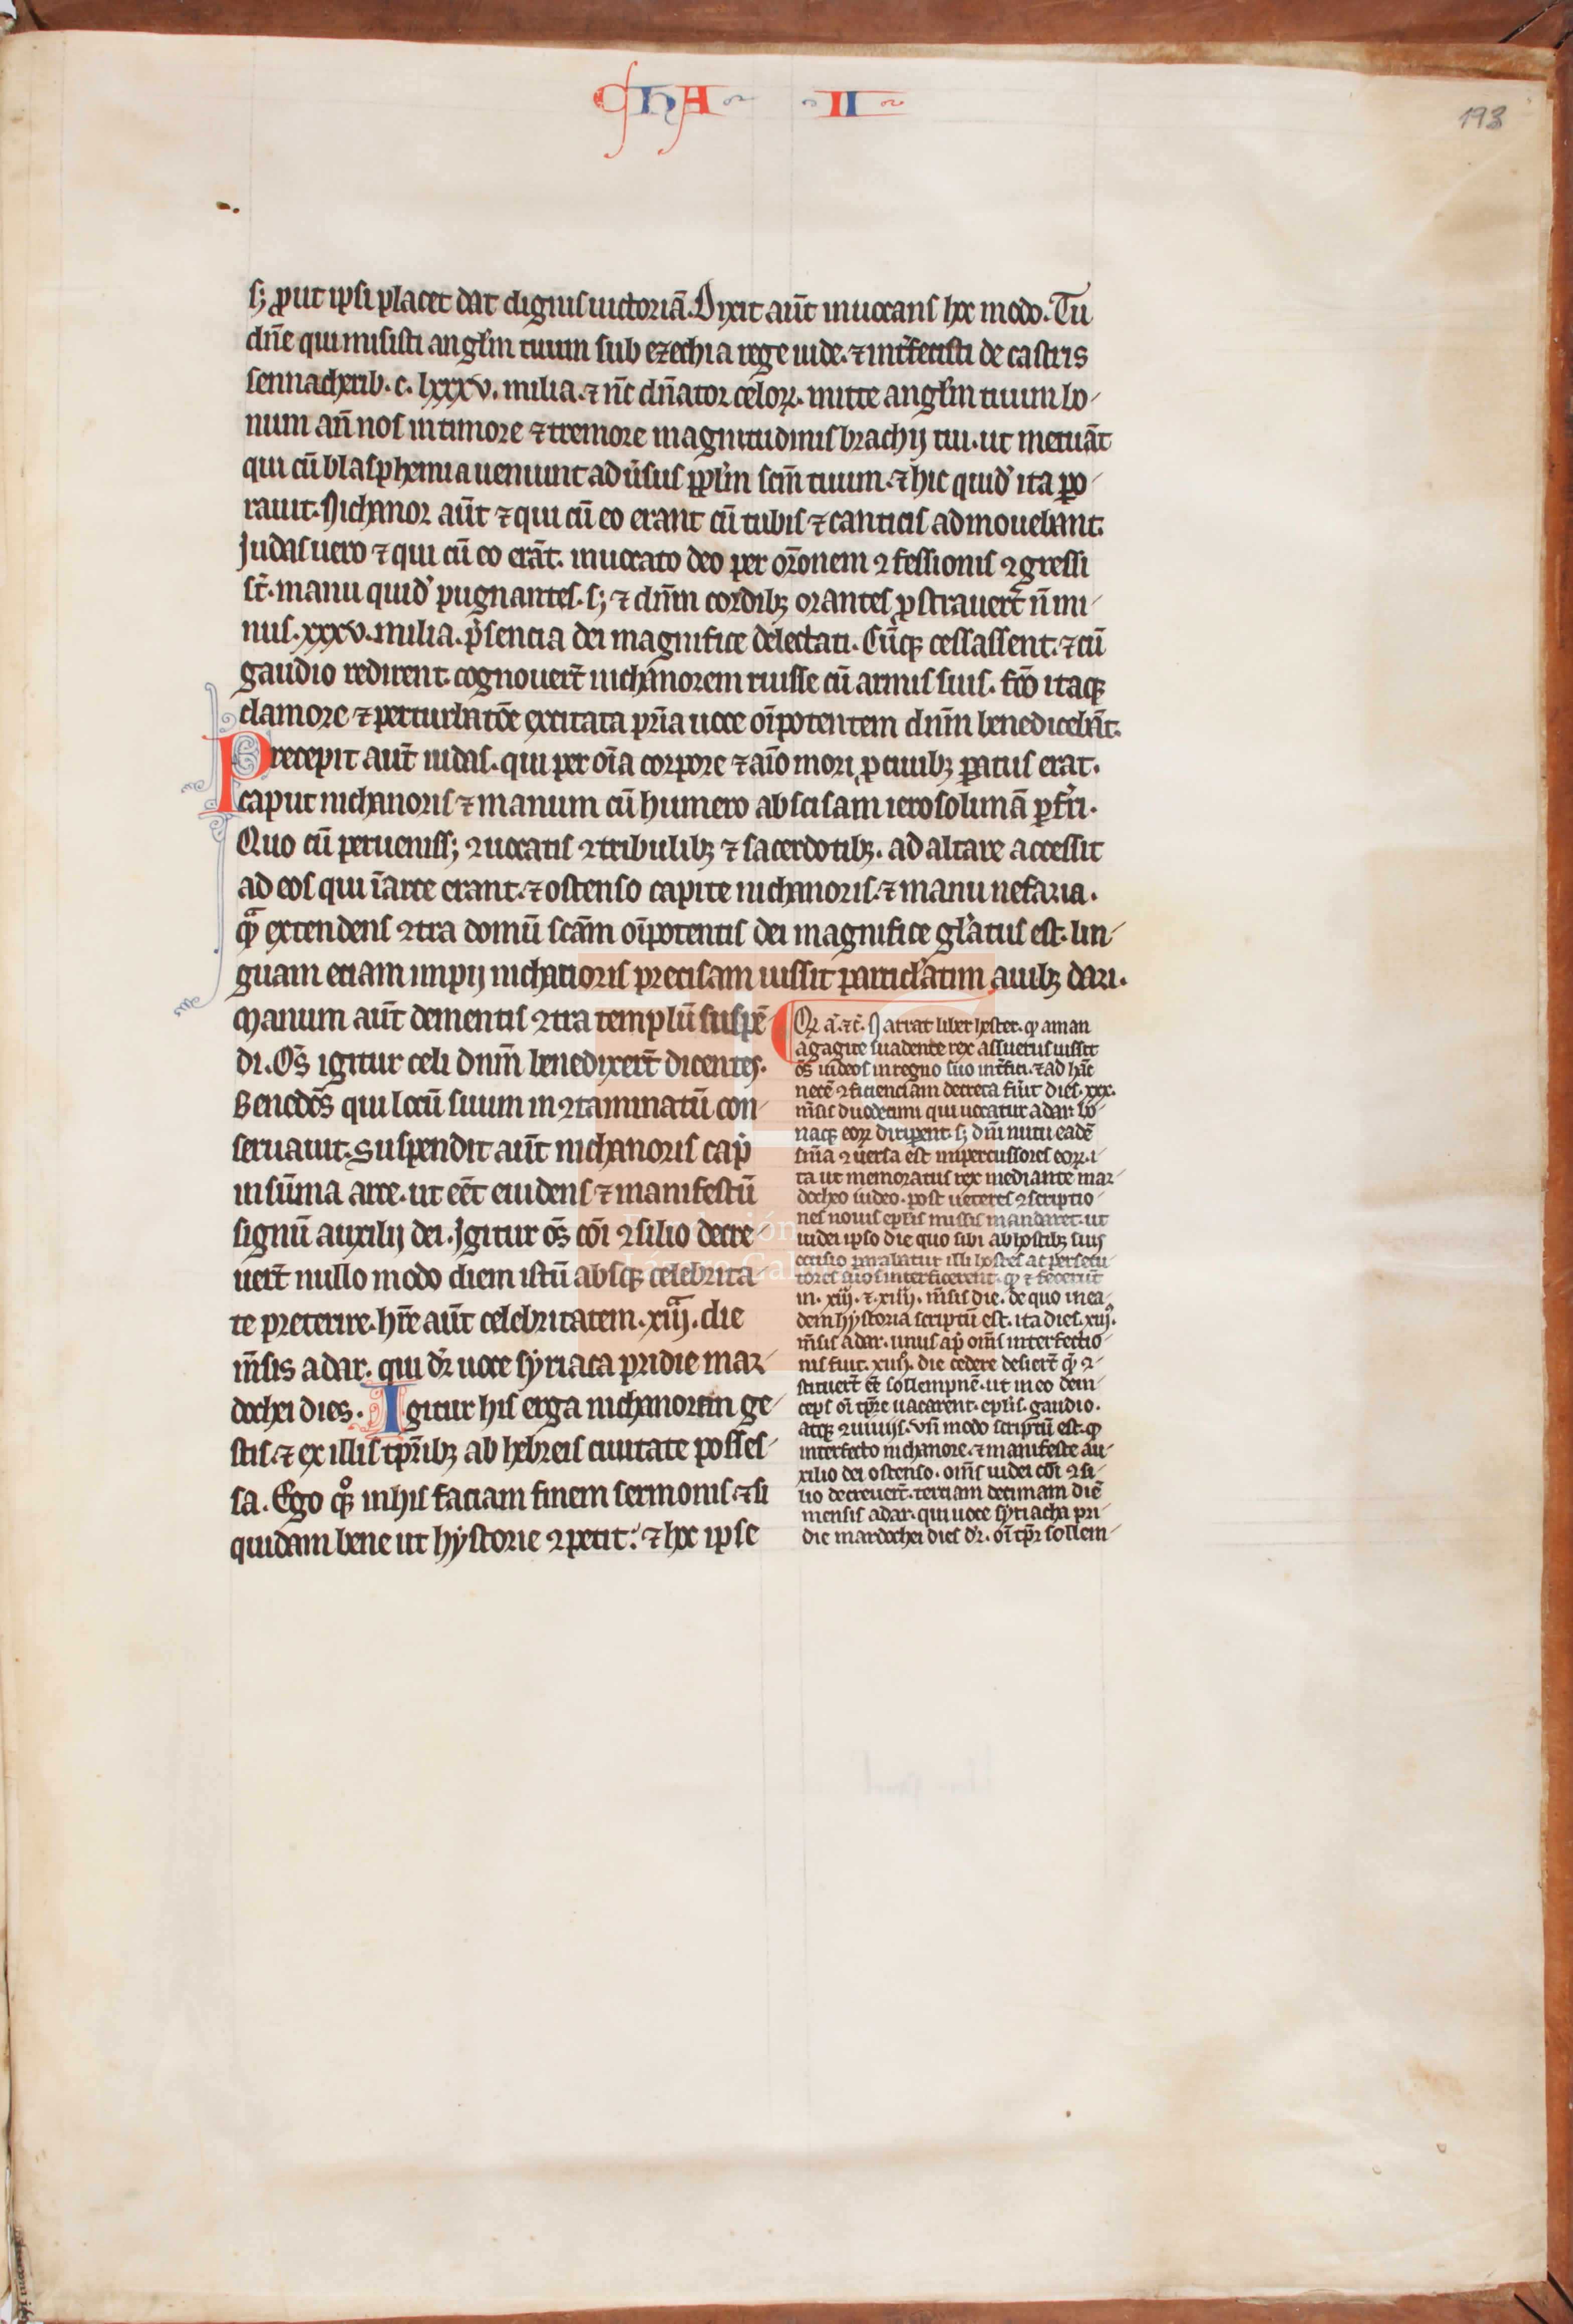 ChA II
193
s; ꝓut ipsi placet dat dignis uictoriā. Dixit aūt inuocans hoc modo. Tu
dn̄e qui misisti angl̄m tuum sub ezechia rege iude. ⁊ int̄fecisti de castris
sennacherib. c. lxxxv. milia. ⁊ nc̄ dn̄ator celoꝝ. mitte angl̄m tuum bo-
num an̄ nos in timore ⁊ tremore magnitudinis brachij tui. ut metuāt
qui cū blasphemia ueniunt aduersus ppl̄m sc̄m tuum. ⁊ hic quid' ita ꝑo-
rauit. Nichanor aūt ⁊ qui cū eo erant cū tubis ⁊ canticis admouebant.
Judas uero ⁊ qui cū eo erāt. inuocato deo per or̄onem ꝯfessionis ꝯgressi
st̄. manu quid' pugnantes. s; ⁊ dn̄m cordibꝫ orantes ꝓstrauert̄ n̄ mi-
nus. xxxv. milia. p̄sencia dei magnifice delectati. Cūqꝫ cessassent. ⁊ cū
gaudio redirent. cognouert̄ nichanorem ruisse cū armis suis. fc̄o itaqꝫ
clamore ⁊ perturbatōe excitata pr̄ia uoce oīpotentem dn̄m benedicebāt.
Precepit aūt iudas. qui per oīa corpore ⁊ aīo mori ꝓ ciuibꝫ ꝑatus erat.
caput nichanoris ⁊ manum cū humero abscisam ierosolimā ꝑfr̄i.
Quo cū perueniss; ꝯuocatis ꝯtribulibꝫ ⁊ sacerdotibꝫ. ad altare accessit
ad eos qui ī arce erant. ⁊ ostenso capite nichanoris. ⁊ manu nefaria.
quā extendens ꝯtra domū sc̄am oīpotentis dei magnifice gl̄atus est. lin-
guam etiam impij nichanoris precisam iussit particl̄atim auibꝫ dari.
Manum aūt dementis ꝯtra templū suspē-
di. Om̄s igitur celi dn̄m benedixert̄ dicentes.
Benedc̄s qui locū suum incontaminatū con-
seruauit. Suspendit aūt nichanoris cap̄
in sūma arce. ut eēt euidens ⁊ manifestū
signū auxilij dei. Igitur om̄s cōi ꝯsilio decre-
uert̄ nullo modo diem istū absqꝫ celebrita-
te preterire. hr̄e aūt celebritatem. xiij. die
m̄sis adar. qui dr̄ uoce syriaca pridie mar-
dochei dies. Igitur his erga nichanorem ge-
stis. ⁊ ex illis tp̄ribꝫ ab hebreis ciuitate posses-
sa. Ego qꝫ in his faciam finem sermonis. ⁊ si
quidam bene ut hystorie ꝯpetit. ⁊ hoc ipse
Narrat liber hester. qͥ aman
agagite suadente rex assuerus iussit
om̄s iudeos in regno suo int̄fici. ⁊ ad hāc
necē ꝯficienciam decreta fūit dies. xxx.
m̄sis duodecimi qui uocatur adar. bo-
naqꝫ eoꝝ diriperent. s; dn̄i nutu eadē
sn̄ia ꝯuersa est in percussores eoꝝ. i-
ta ut memoratus rex mediante mar-
docheo iudeo. post ueteres ꝯscriptio-
nes nouis epl̄is missis mandaret. ut
iudei ipso die quo sibi ab hostibꝫ suis
occisio parabatur illi hostes ac persecu-
tores suos interficerent. qͩ ⁊ fecerūt
in. xiij. ⁊. xiiij. m̄sis die. de quo in ea-
dem hystoria scriptū est. ita dies. xiij.
m̄sis adar. unus ap̄ om̄s interfectio-
nis fuit. xiiij. die cedere desiert̄ quē ꝯ-
stituert̄ eē sollempnē. ut in eo dein-
ceps oī tp̄re uacarent. epl̄is. gaudio.
atqꝫ ꝯuiuijs. Vn̄ modo scriptū est. qͩ
interfecto nichanore. ⁊ manifeste au-
xilio dei ostenso. om̄s iudei cōi ꝯsi-
lio decreuert̄. terciam decimam diē
mensis adar. qui uoce syriacha pri-
die mardochei dies dr̄. oī tp̄r sollem-